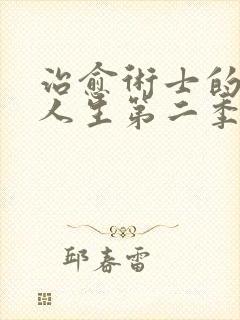 治愈術士的
人生第二季
邱春雷